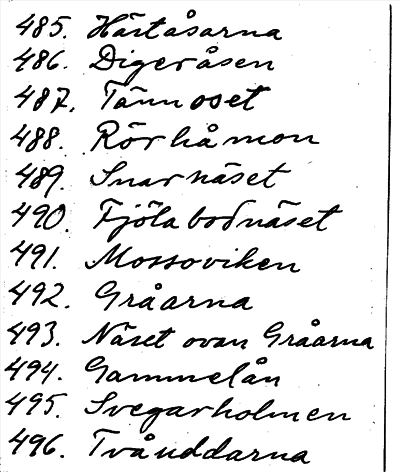 485. Härtåsarna
486. Digeråsen
487. Tännoset
488. Rörhåmon
489. Snarnäset
490. Fjölabodnäset
491. Mossoviken
492. Gråarna
493. Näset ovan Gråarna
494. Gammelån
495. Svegarholmen
496. Tvåuddarna